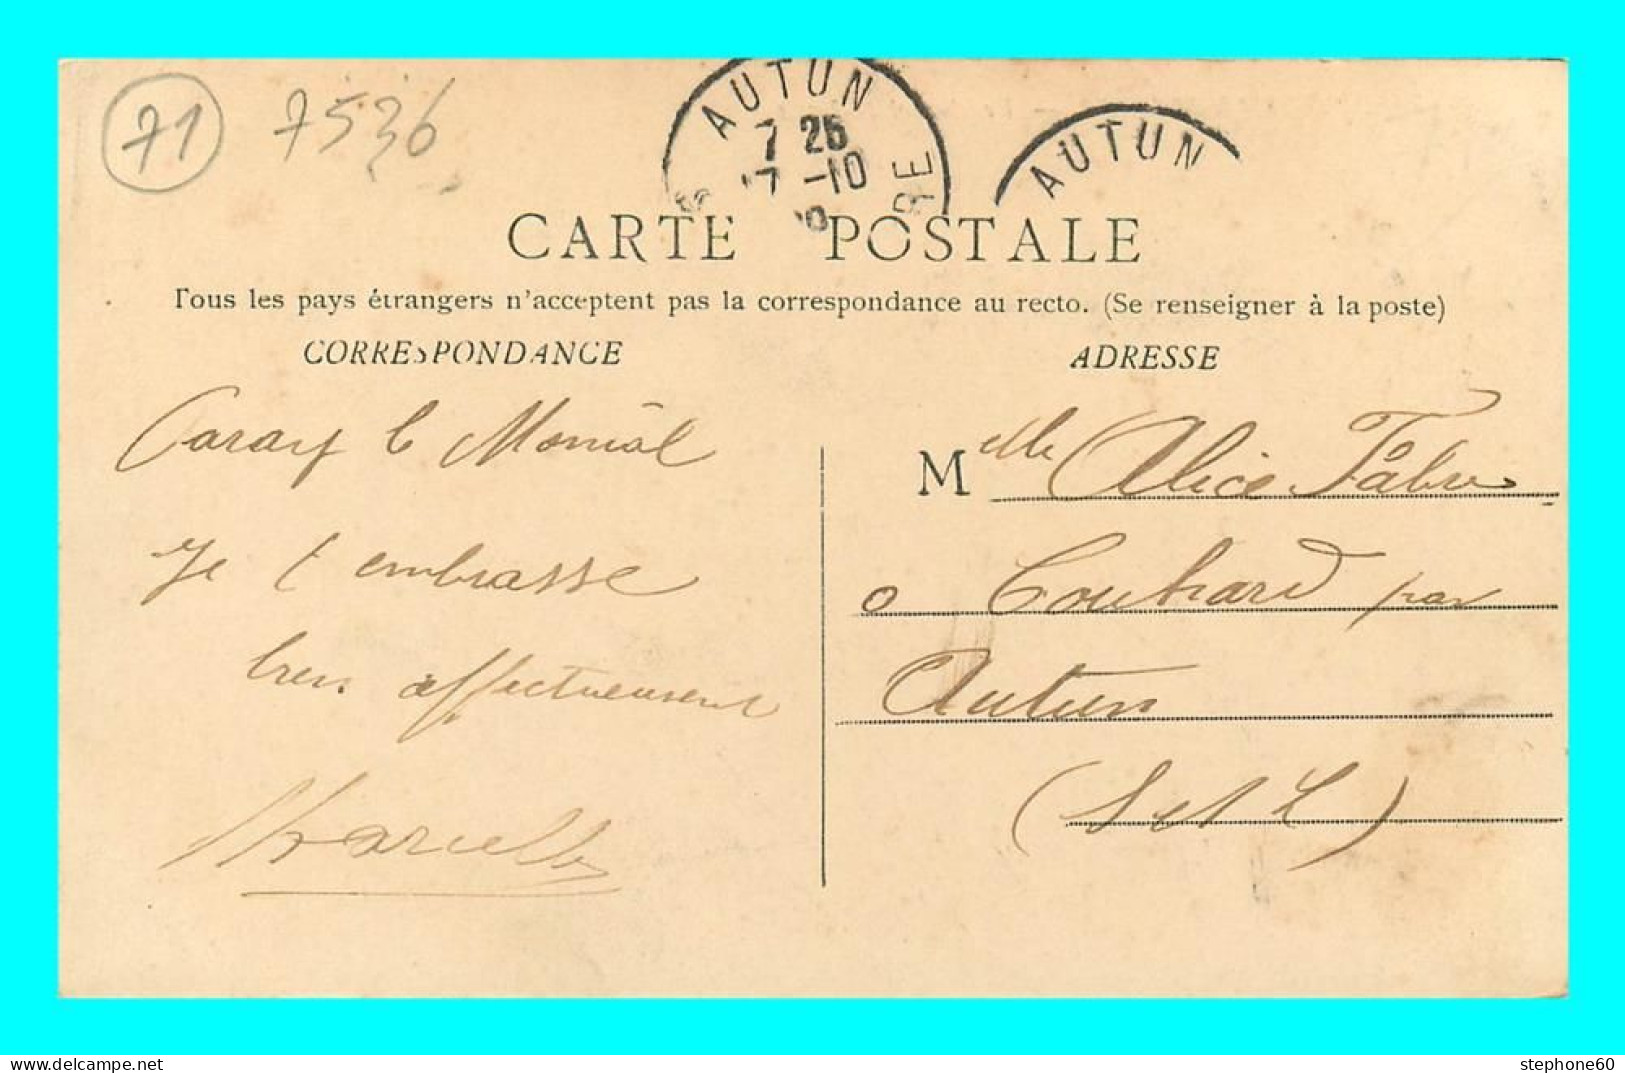 71 7536
AUTUN
7 25
17 -10
RE
AUTUN
CARTE POSTALE
Tous les pays étrangers n'acceptent pas la correspondance au recto. (Se renseigner à la poste)
CORRESPONDANCE
ADRESSE
Paray le Monial
Je t embrasse
bien affectueusement
Marcelle
Melle Alice Fabre
o Couhard par
Autun
(S et L)
www.delcampe.net
stephone60